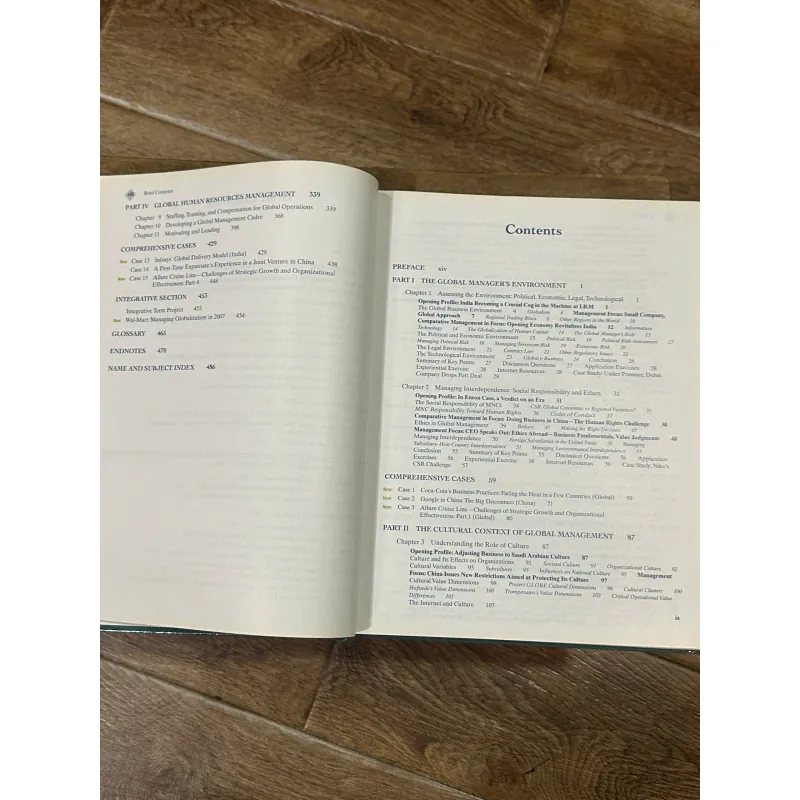 Brief Contents
PART IV GLOBAL HUMAN RESOURCES MANAGEMENT 339
Chapter 9 Staffing, Training, and Compensation for Global Operations 339
Chapter 10 Developing a Global Management Cadre 368
Chapter 11 Motivating and Leading 398
COMPREHENSIVE CASES 429
New Case 13 Infosys' Global Delivery Model (India) 429
Case 14 A First-Time Expatriate's Experience in a Joint Venture in China 438
New Case 15 Allure Cruise Line—Challenges of Strategic Growth and Organizational
Effectiveness: Part 4 448
INTEGRATIVE SECTION 453
Integrative Term Project 453
New Wal-Mart: Managing Globalization in 2007 454
GLOSSARY 465
ENDNOTES 470
NAME AND SUBJECT INDEX 486
Contents
PREFACE xiv
PART I THE GLOBAL MANAGER'S ENVIRONMENT 1
Chapter 1 Assessing the Environment: Political, Economic, Legal, Technological 1
Opening Profile: India Becoming a Crucial Cog in the Machine at I.B.M. 1
The Global Business Environment 4 Globalism 4 Management Focus: Small Company,
Global Approach 7 Regional Trading Blocs 8 Other Regions in the World 10
Comparative Management in Focus: Opening Economy Revitalizes India 12 Information
Technology 14 The Globalization of Human Capital 14 The Global Manager's Role 15
The Political and Economic Environment 15 Political Risk 15 Political Risk Assessment 17
Managing Political Risk 18 Managing Terrorism Risk 19 Economic Risk 20
The Legal Environment 21 Contract Law 22 Other Regulatory Issues 22
The Technological Environment 23 Global e-Business 24 Conclusion 26
Summary of Key Points 27 Discussion Questions 27 Application Exercises 28
Experiential Exercise 28 Internet Resources 28 Case Study: Under Pressure, Dubai
Company Drops Port Deal 29
Chapter 2 Managing Interdependence: Social Responsibility and Ethics 31
Opening Profile: In Enron Case, a Verdict on an Era 31
The Social Responsibility of MNCs 34 CSR: Global Consensus or Regional Variation? 35
MNC Responsibility Toward Human Rights 36 Codes of Conduct 37
Comparative Management in Focus: Doing Business in China—The Human Rights Challenge 38
Ethics in Global Management 39 Bribery 45 Making the Right Decision 47
Management Focus: CEO Speaks Out: Ethics Abroad—Business Fundamentals, Value Judgments 48
Managing Interdependence 50 Foreign Subsidiaries in the United States 50 Managing
Subsidiary–Host Country Interdependence 51 Managing Environmental Interdependence 53
Conclusion 55 Summary of Key Points 55 Discussion Questions 56 Application
Exercises 56 Experiential Exercise 56 Internet Resources 56 Case Study: Nike's
CSR Challenge 57
COMPREHENSIVE CASES 59
New Case 1 Coca-Cola's Business Practices: Facing the Heat in a Few Countries (Global) 59
New Case 2 Google in China: The Big Disconnect (China) 71
New Case 3 Allure Cruise Line—Challenges of Strategic Growth and Organizational
Effectiveness: Part 1 (Global) 80
PART II THE CULTURAL CONTEXT OF GLOBAL MANAGEMENT 87
Chapter 3 Understanding the Role of Culture 87
Opening Profile: Adjusting Business to Saudi Arabian Culture 87
Culture and Its Effects on Organizations 91 Societal Culture 91 Organizational Culture 92
Cultural Variables 93 Subcultures 93 Influences on National Culture 95 Management
Focus: China Issues New Restrictions Aimed at Protecting Its Culture 97
Cultural Value Dimensions 98 Project GLOBE Cultural Dimensions 98 Cultural Clusters 100
Hofstede's Value Dimensions 100 Trompenaars's Value Dimensions 103 Critical Operational Value
Differences 105
The Internet and Culture 107
ix